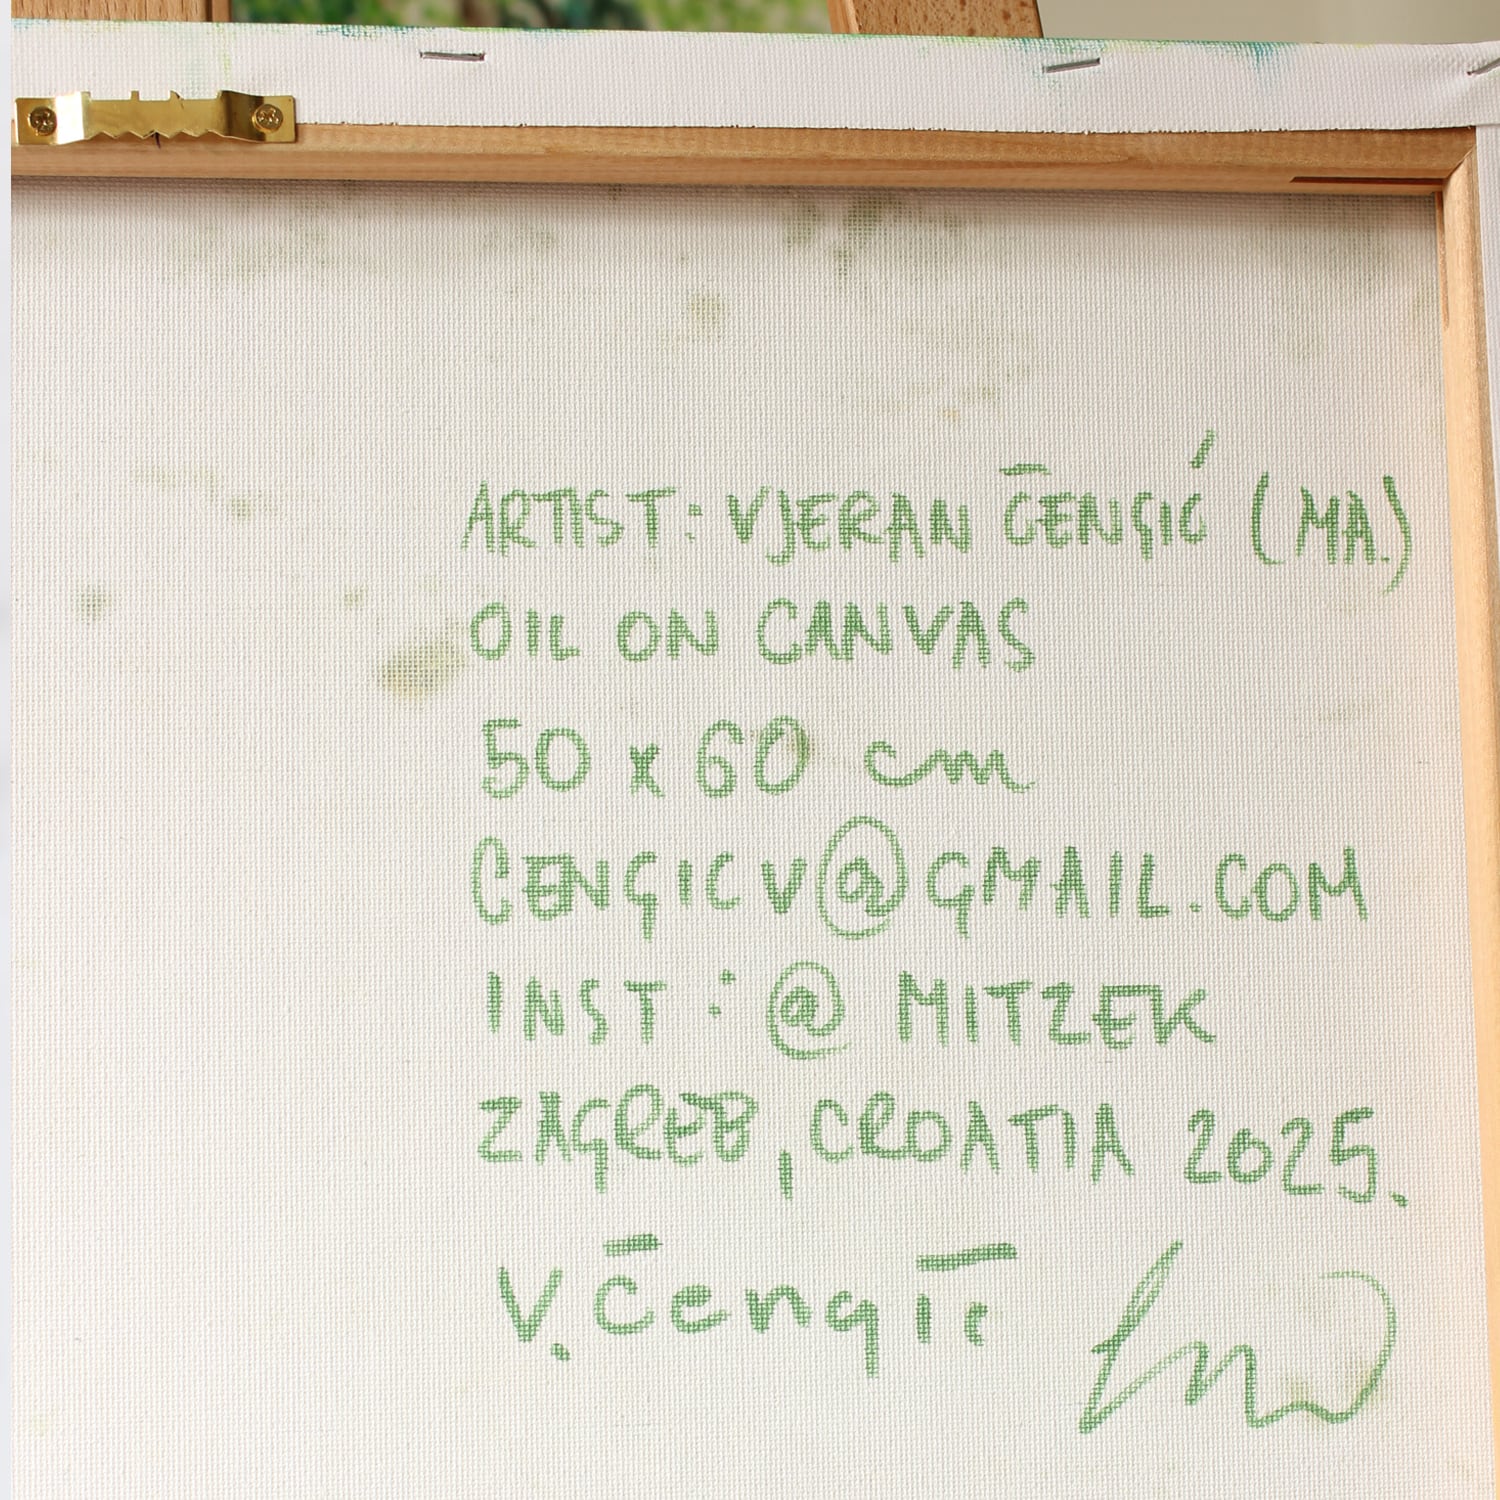 ARTIST: VJERAN ČENGIĆ (MA.)
OIL ON CANVAS
50 x 60 cm
CENGICV@GMAIL.COM
INST: @MITZEK
ZAGREB, CROATIA 2025.
V. Čengić